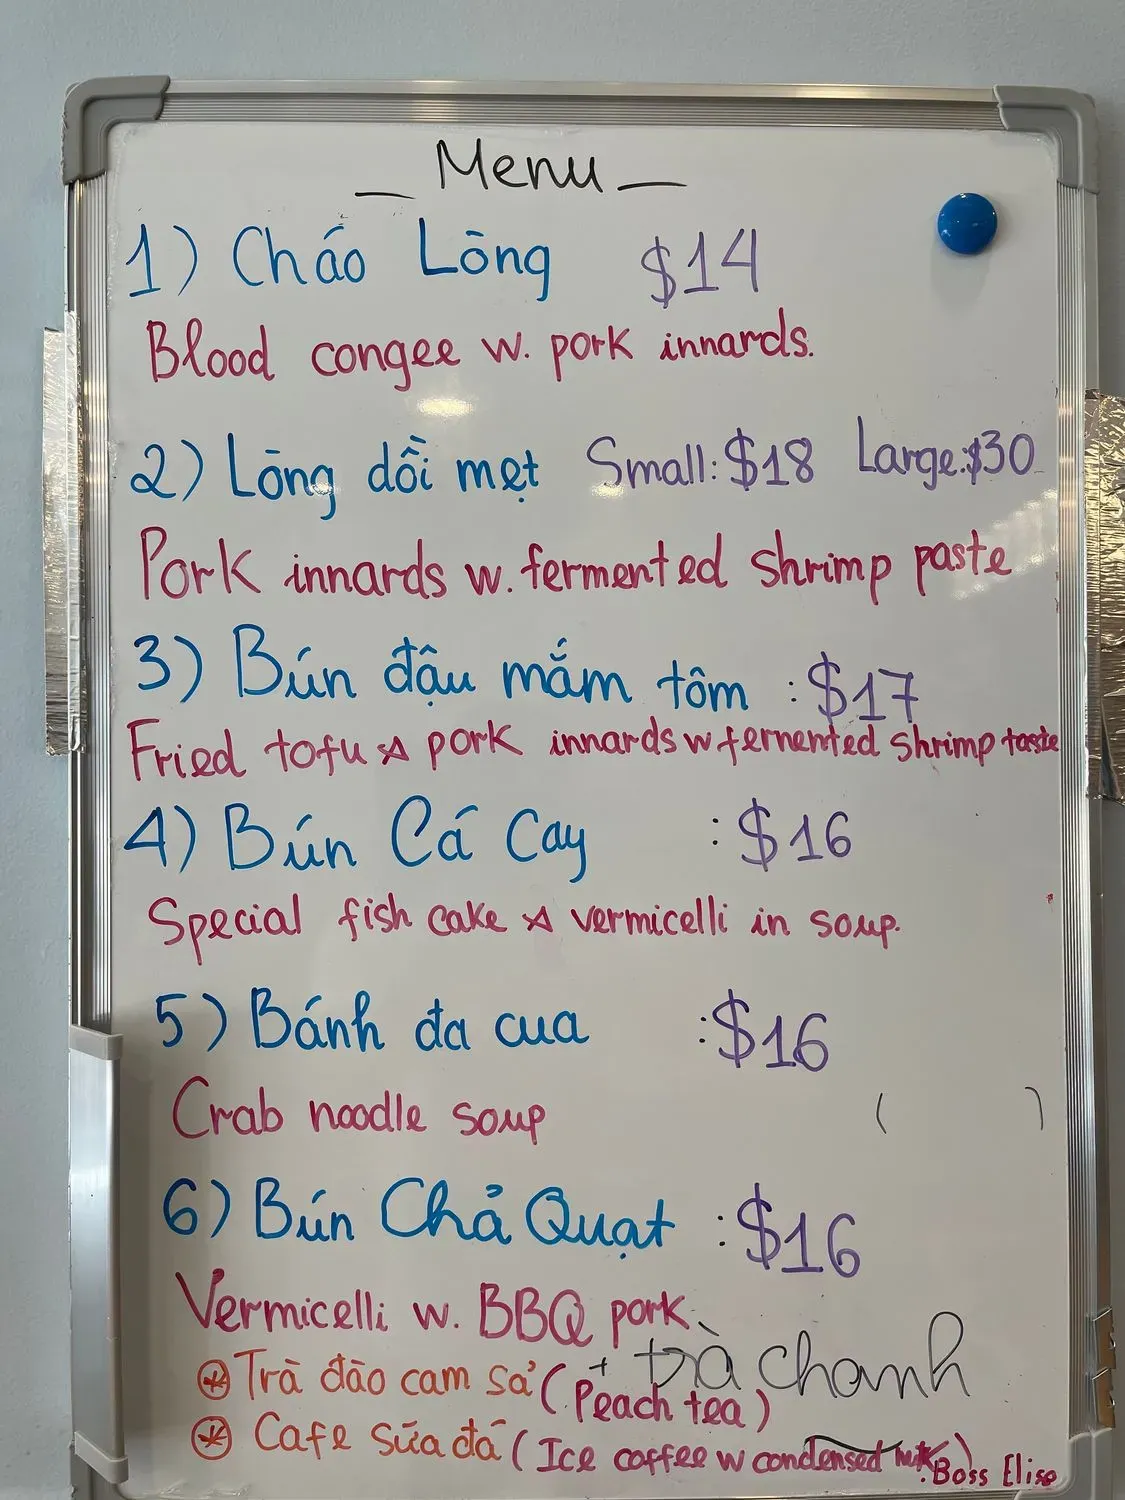 _ Menu _
1) Cháo Lōng $14
Blood congee w. pork innards.
2) Lōng dồi mẹt Small: $18 Large: $30
Pork innards w. fermented shrimp paste
3) Bún đậu mắm tôm : $17
Fried tofu & pork innards w fermented shrimp taste
4) Bún Cá Cay : $16
Special fish cake & vermicelli in soup.
5) Bánh đa cua : $16
Crab noodle soup
( )
6) Bún Chả Quạt : $16
Vermicelli w. BBQ pork
+ trà chanh
* Trà đào cam sả (Peach tea)
* Cafe sữa đá (Ice coffee w condensed milk)
Boss Elise